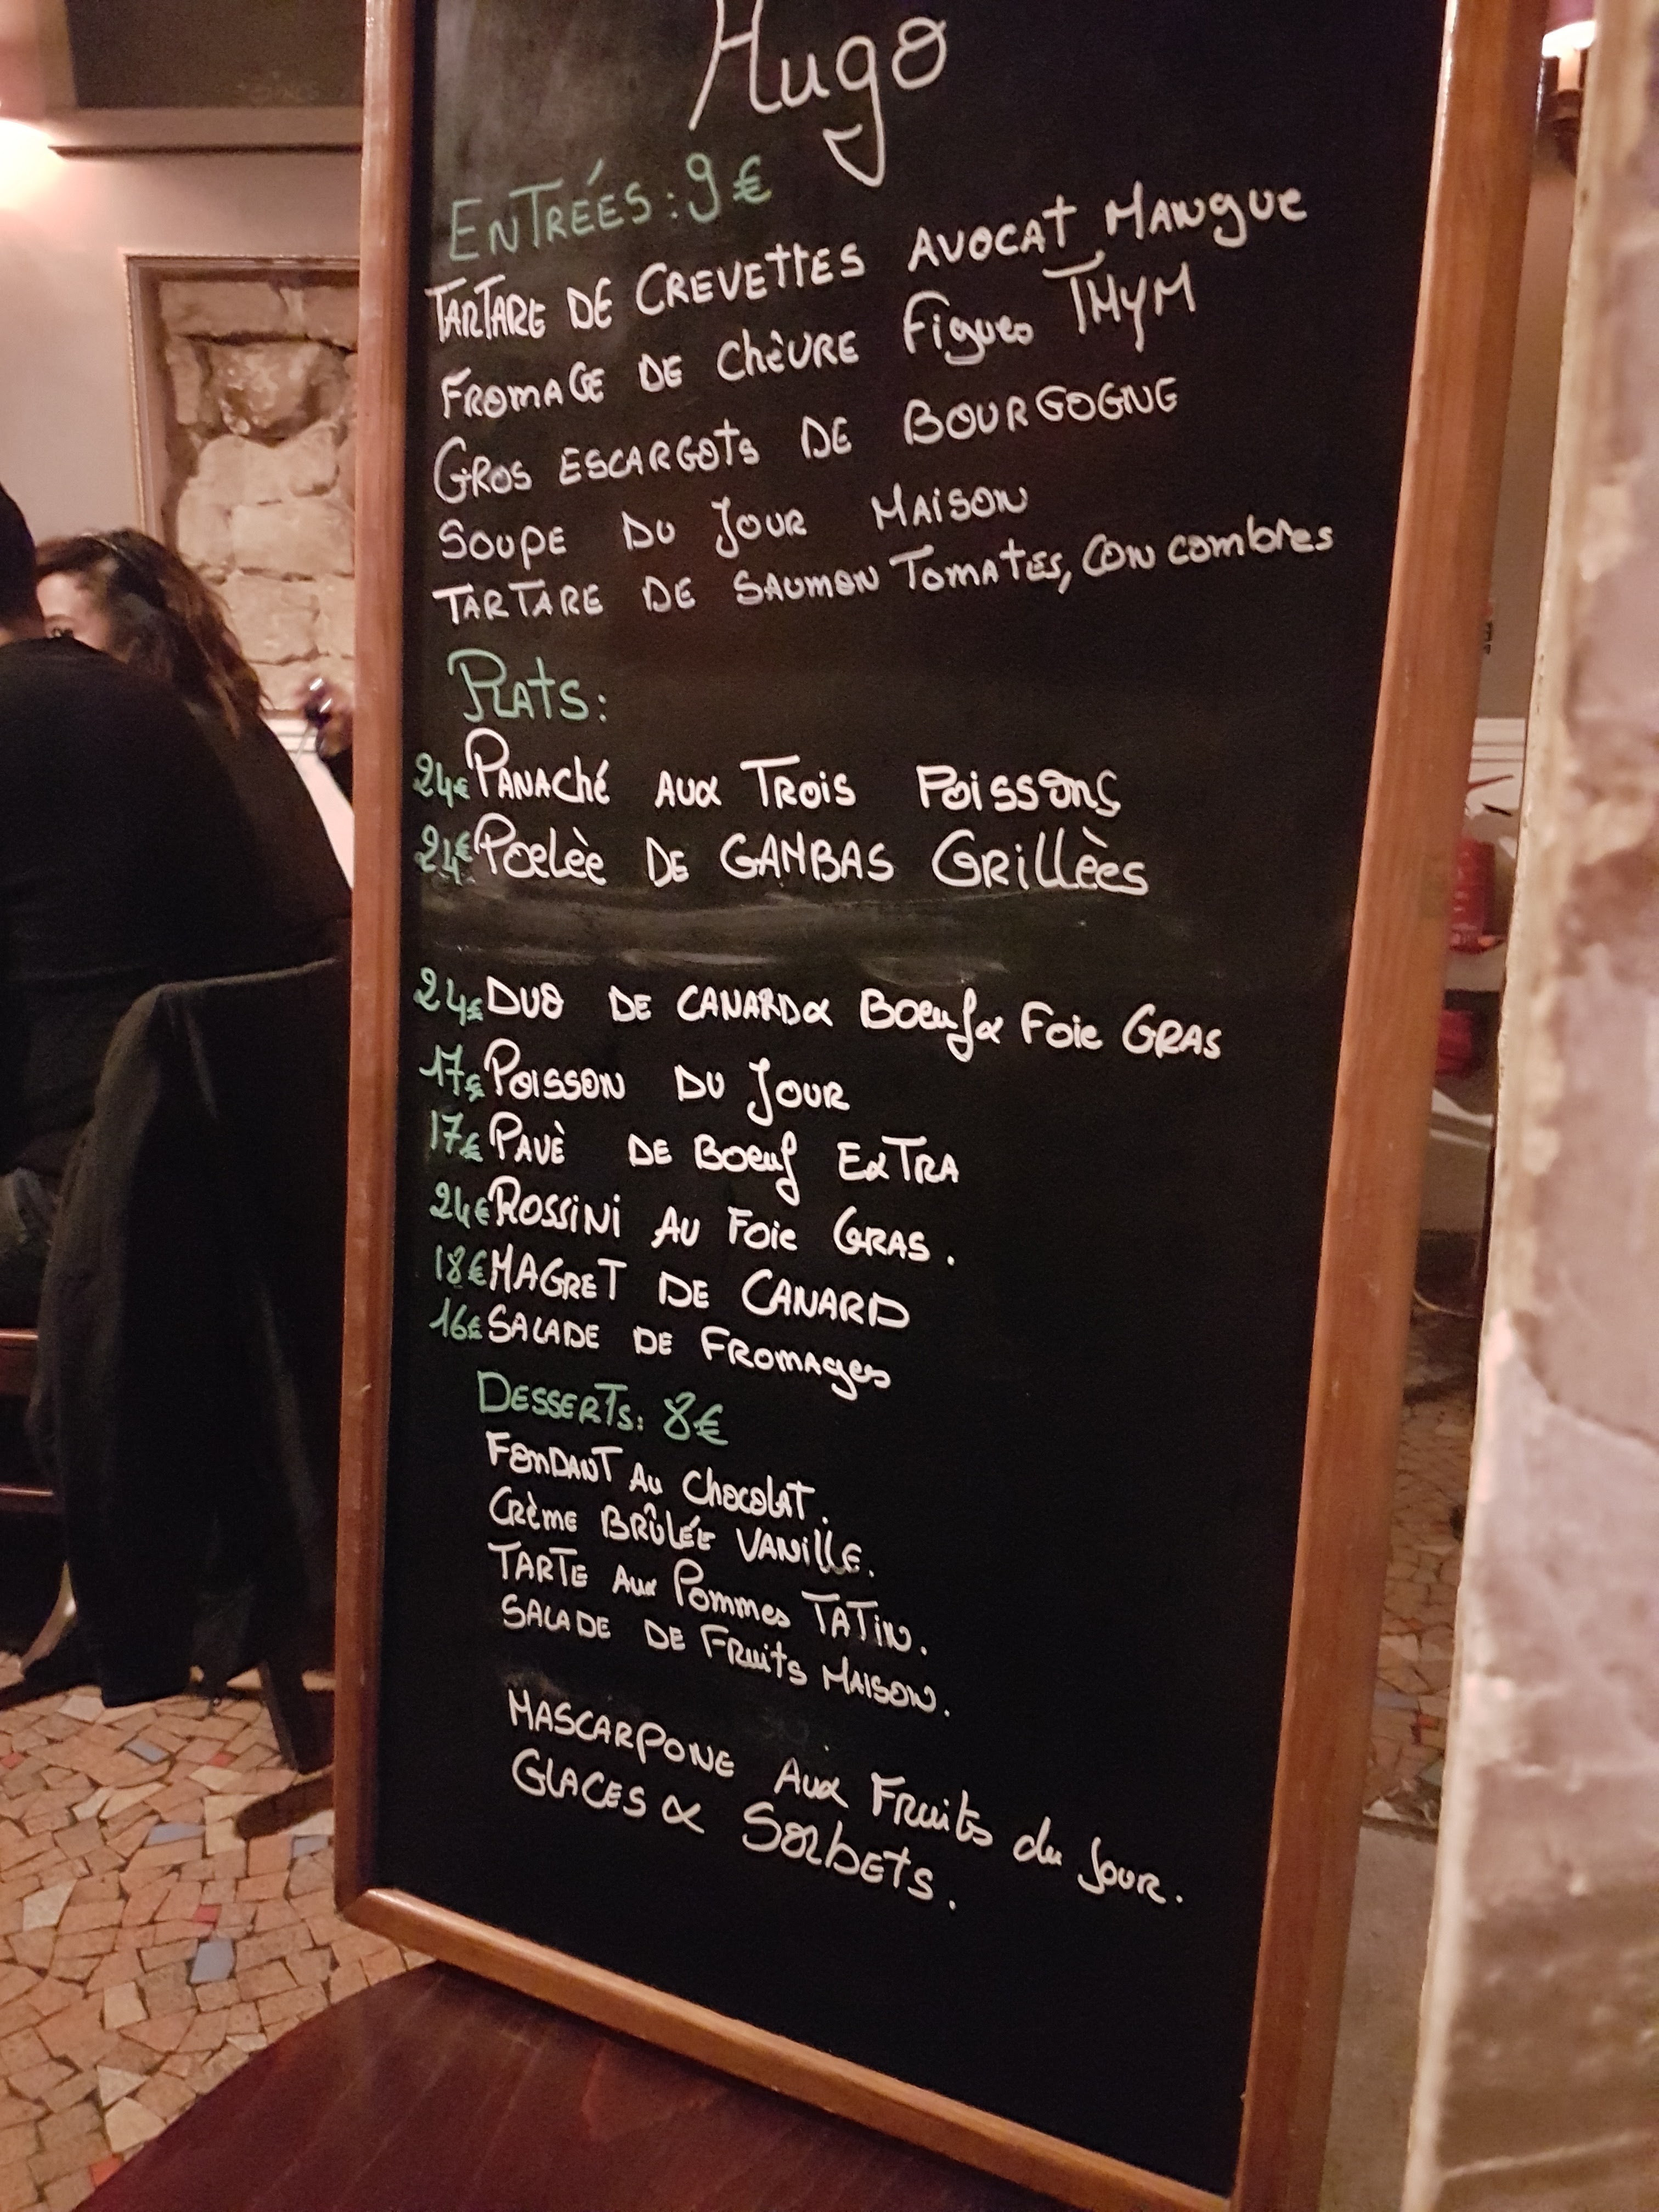 Hugo
ENTRÉES: 9€
TARTARE DE CREVETTES AVOCAT MANGUE
FROMAGE DE CHÈVRE Figues THYM
GROS ESCARGOTS DE BOURGOGNE
SOUPE DU JOUR MAISON
TARTARE DE SAUMON TOMATES, CONCOMBRES
PLATS:
24€ PANACHÉ AUX TROIS POISSONS
24€ POELÈE DE GAMBAS GRILLÈES
24€ DUO DE CANARD & BOEUF & FOIE GRAS
17€ POISSON DU JOUR
17€ PAVÈ DE BOEUF EXTRA
24€ ROSSINI AU FOIE GRAS.
18€ MAGRET DE CANARD
16€ SALADE DE FROMAGES
DESSERTS: 8€
FONDANT AU CHOCOLAT.
CRÈME BRÛLÉE VANILLE.
TARTE AUX POMMES TATIN.
SALADE DE FRUITS MAISON.
MASCARPONE AUX FRUITS du JOUR.
GLACES & SORBETS.